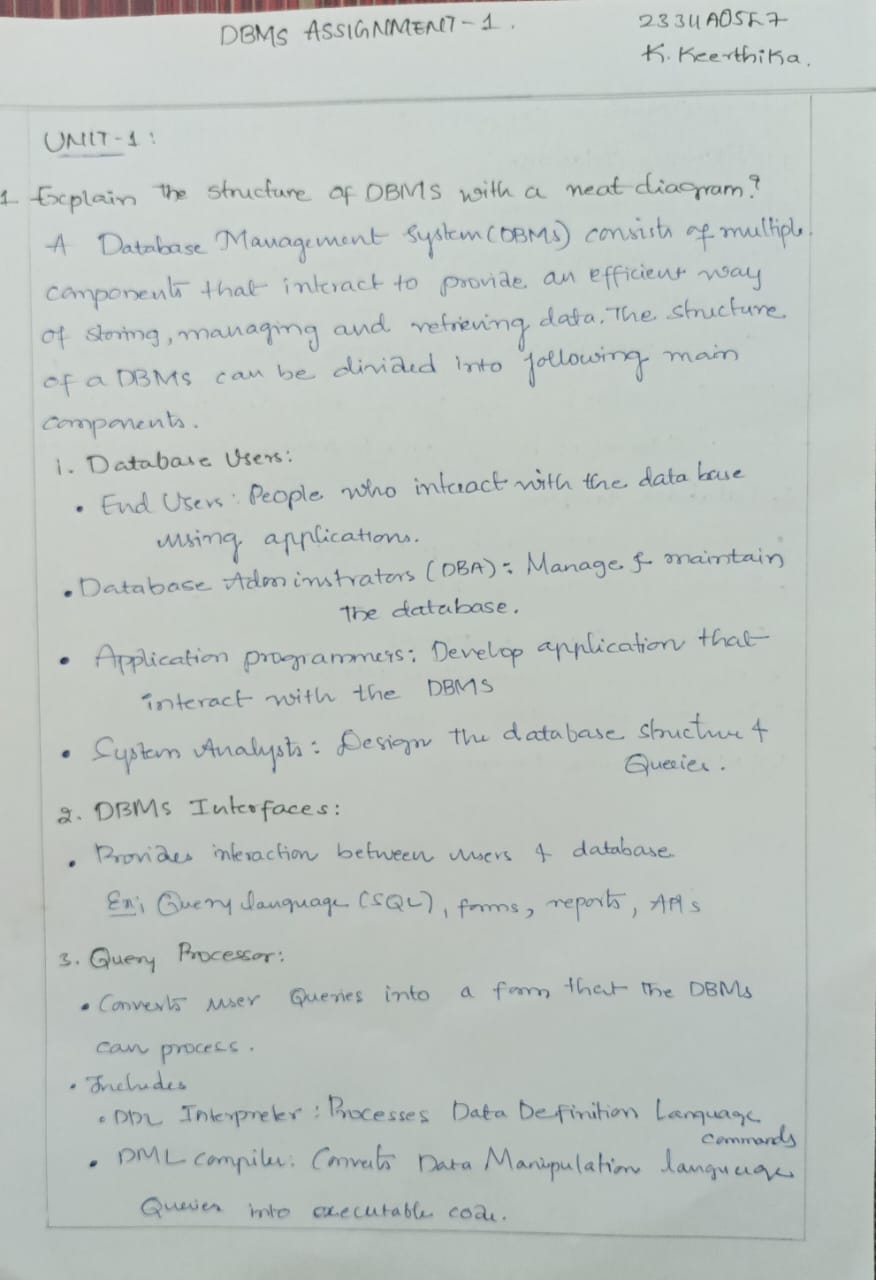 DBMS ASSIGNMENT-1.
2334A05E7
K. Keerthika.
UNIT-1:
1 Explain the structure of DBMS with a neat diagram?
A Database Management System (DBMS) consists of multiple
components that interact to provide an efficient way
of storing, managing and retrieving data. The structure
of a DBMS can be divided into following main
components.
1. Database Users:
• End Users: People who interact with the data base
using applications.
• Database Adminstrators (DBA): Manage & maintain
the database.
• Application programmers: Develop application that
interact with the DBMS
• System Analysts: Design the database structure &
Queries.
2. DBMS Interfaces:
• Provides interaction between users & database
Ex: Query language (SQL), forms, reports, APIs
3. Query Processor:
• Converts user Queries into a form that the DBMS
can process.
• Includes
• DDL Interpreter: Processes Data Definition Language
commands
• DML compiler: Converts Data Manipulation language
Queries into executable code.